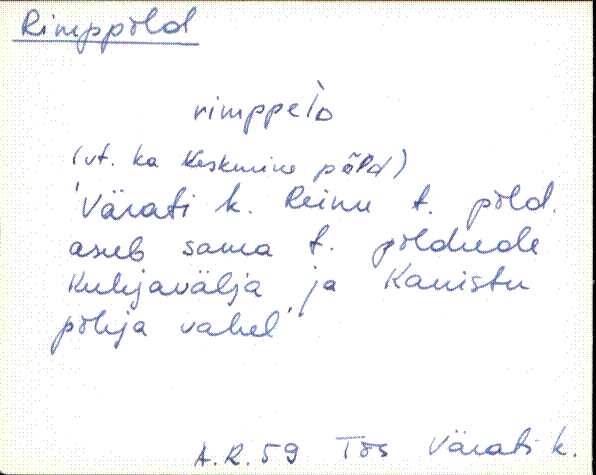 Rimppõld
rimppel̀D
(vt. ka Keskmine põld)
'Värati k. Reinu t. põld.
aseb sama t. põldude
Kuhjavälja ja Kanistu
põhja vahel'.
A.R. 59 Tõs Värati k.